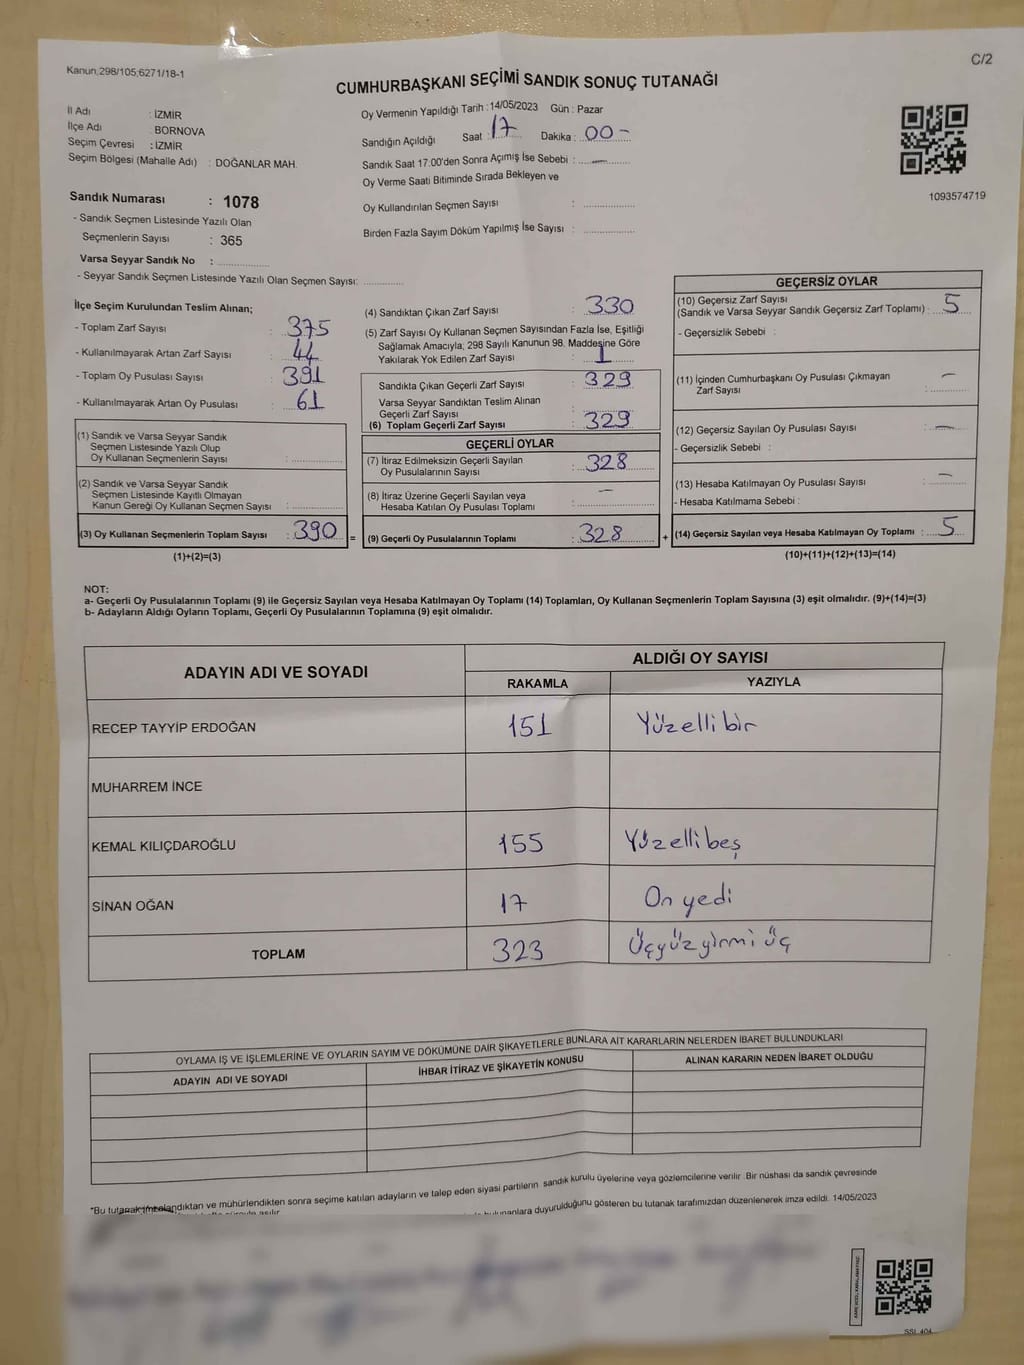 Kanun;298/105;6271/18-1
C/2
CUMHURBAŞKANI SEÇİMİ SANDIK SONUÇ TUTANAĞI
İl Adı : İZMİR
İlçe Adı : BORNOVA
Seçim Çevresi : İZMİR
Seçim Bölgesi (Mahalle Adı) : DOĞANLAR MAH.
Oy Vermenin Yapıldığı Tarih : 14/05/2023 Gün : Pazar
Sandığın Açıldığı Saat : 17 Dakika : 00-
Sandık Saat 17:00'den Sonra Açımış İse Sebebi : —
Oy Verme Saati Bitiminde Sırada Bekleyen ve
Oy Kullandırılan Seçmen Sayısı :
Birden Fazla Sayım Döküm Yapılmış İse Sayısı :
1093574719
Sandık Numarası : 1078
- Sandık Seçmen Listesinde Yazılı Olan
Seçmenlerin Sayısı : 365
Varsa Seyyar Sandık No :
- Seyyar Sandık Seçmen Listesinde Yazılı Olan Seçmen Sayısı:
İlçe Seçim Kurulundan Teslim Alınan;
- Toplam Zarf Sayısı : 375
- Kullanılmayarak Artan Zarf Sayısı : 44
- Toplam Oy Pusulası Sayısı : 391
- Kullanılmayarak Artan Oy Pusulası : 61
(1) Sandık ve Varsa Seyyar Sandık
Seçmen Listesinde Yazılı Olup
Oy Kullanan Seçmenlerin Sayısı :
(2) Sandık ve Varsa Seyyar Sandık
Seçmen Listesinde Kayıtlı Olmayan
Kanun Gereği Oy Kullanan Seçmen Sayısı :
(3) Oy Kullanan Seçmenlerin Toplam Sayısı : 390 =
(1)+(2)=(3)
(4) Sandıktan Çıkan Zarf Sayısı : 330
(5) Zarf Sayısı Oy Kullanan Seçmen Sayısından Fazla İse, Eşitliği
Sağlamak Amacıyla; 298 Sayılı Kanunun 98. Maddesine Göre
Yakılarak Yok Edilen Zarf Sayısı : 1
Sandıkta Çıkan Geçerli Zarf Sayısı : 329
Varsa Seyyar Sandıktan Teslim Alınan
Geçerli Zarf Sayısı :
(6) Toplam Geçerli Zarf Sayısı : 329
GEÇERLİ OYLAR
(7) İtiraz Edilmeksizin Geçerli Sayılan
Oy Pusulalarının Sayısı : 328
(8) İtiraz Üzerine Geçerli Sayılan veya
Hesaba Katılan Oy Pusulası Toplamı : —
(9) Geçerli Oy Pusulalarının Toplamı : 328 +
GEÇERSİZ OYLAR
(10) Geçersiz Zarf Sayısı
(Sandık ve Varsa Seyyar Sandık Geçersiz Zarf Toplamı) : 5
- Geçersizlik Sebebi :
(11) İçinden Cumhurbaşkanı Oy Pusulası Çıkmayan
Zarf Sayısı : —
(12) Geçersiz Sayılan Oy Pusulası Sayısı : —
- Geçersizlik Sebebi :
(13) Hesaba Katılmayan Oy Pusulası Sayısı : —
- Hesaba Katılmama Sebebi :
(14) Geçersiz Sayılan veya Hesaba Katılmayan Oy Toplamı : 5
(10)+(11)+(12)+(13)=(14)
NOT:
a- Geçerli Oy Pusulalarının Toplamı (9) ile Geçersiz Sayılan veya Hesaba Katılmayan Oy Toplamı (14) Toplamları, Oy Kullanan Seçmenlerin Toplam Sayısına (3) eşit olmalıdır. (9)+(14)=(3)
b- Adayların Aldığı Oyların Toplamı, Geçerli Oy Pusulalarının Toplamına (9) eşit olmalıdır.
ADAYIN ADI VE SOYADI ALDIĞI OY SAYISI
RAKAMLA YAZIYLA
RECEP TAYYİP ERDOĞAN 151 Yüzelli bir
MUHARREM İNCE
KEMAL KILIÇDAROĞLU 155 Yüzelli beş
SİNAN OĞAN 17 On yedi
TOPLAM 323 Üçyüz yirmi üç
OYLAMA İŞ VE İŞLEMLERİNE VE OYLARIN SAYIM VE DÖKÜMÜNE DAİR ŞİKAYETLERLE BUNLARA AİT KARARLARIN NELERDEN İBARET BULUNDUKLARI
ADAYIN ADI VE SOYADI İHBAR İTİRAZ VE ŞİKAYETİN KONUSU ALINAN KARARIN NEDEN İBARET OLDUĞU
*Bu tutanak imzalandıktan ve mühürlendikten sonra seçime katılan adayların ve talep eden siyasi partilerin sandık kurulu üyelerine veya gözlemcilerine verilir. Bir nüshası da sandık çevresinde
duyurulduğunu gösteren bu tutanak tarafımızdan düzenlenerek imza edildi. 14/05/2023
SSL 404